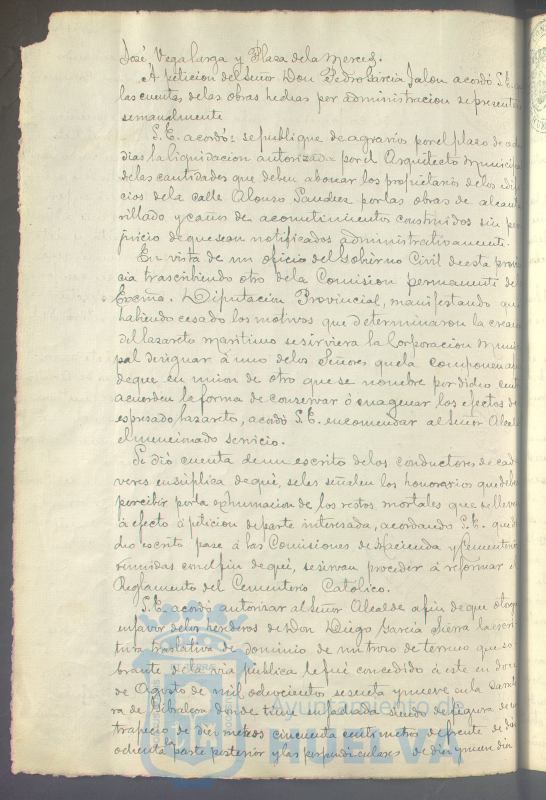 José, Vega larga y Plaza de la Merced.
A petición del Señor Don Pedro Garcia Jalon acordó S.E. q
las cuentas de las obras hechas por administracion se presenten
semanalmente
S.E. acordó: se publique de agravios por el plazo de
dias la liquidacion autorizada por el Arquitecto Municipal
de las cantidades que deben abonar los propietarios de los edi
cios de la calle Alonso Sanchez por las obras de alcan
rillado y caños de acometimientos construidos sin per
juicio de que sean notificados administrativamente.
En vista de un oficio del Gobierno Civil de esta provin
cia trascribiendo otro de la Comision permanente de
Excma. Diputacion Provincial, manifestando que
habiendo cesado los motivos que determinaron la creac
del lazareto maritimo se sirviera la Corporacion Munici
pal designar á uno de los Señores que la componen a
de que en union de otro que se nombre por dicho
acuerden la forma de conservar ó enagenar, los efectos de
espresado lazareto, acordó S.E. encomendar al Señor Alcalde
el mencionado servicio.
Se dió cuenta de un escrito de los conductores de cadá
veres en súplica de que, se les señalen los honorarios que deben
percibir por la exhumacion de los restos mortales que se lleve
á efecto á peticion de parte interesada, acordando S.E. que
dicho escrito pase á las Comisiones de Hacienda y Cementerio
reunidas con el fin de que, se sirvan proceder á reformar el
Reglamento del Cementerio Católico.
S.E. acordó autorizar al Señor Alcalde a fin de que otorgue
en favor de los herederos de Don Diego Garcia Sierra la escri
tura traslativa de dominio de un trozo de terreno que so
brante de la via publica le fué concedido á este en doce
de Agosto de mil ochocientos sesenta y nueve en la Carre
ra de Gibraleon donde tiene su fachada siendo de figura de un
trapecio de diez metros cincuenta centimetros de frente de diez
ochenta la parte posterior y las perpendiculares de diez y nueve diez
Ayuntamiento de
HUELVA